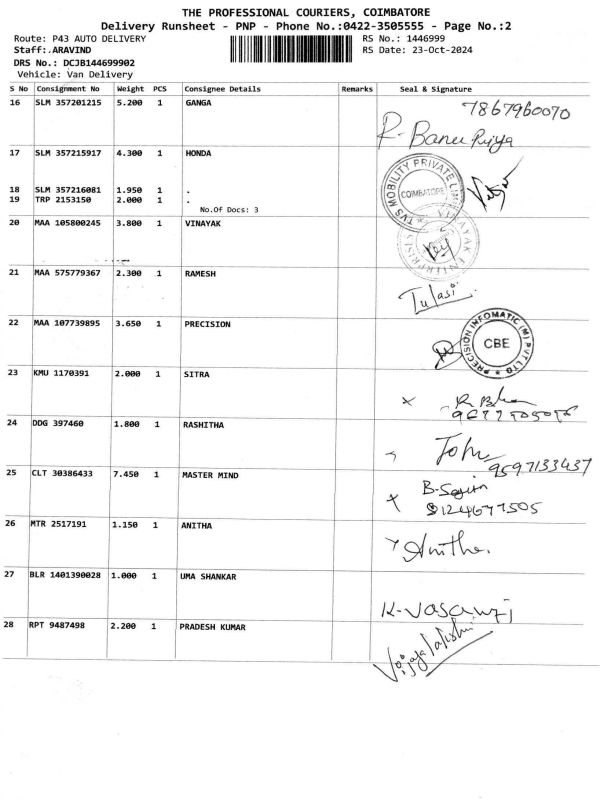 THE PROFESSIONAL COURIERS, COIMBATORE
Delivery Runsheet - PNP - Phone No.:0422-3505555 - Page No.:2
Route: P43 AUTO DELIVERY RS No.: 1446999
Staff:.ARAVIND RS Date: 23-Oct-2024
DRS No.: DCJB144699902
Vehicle: Van Delivery
S No Consignment No Weight PCS Consignee Details Remarks Seal & Signature
16 SLM 357201215 5.200 1 GANGA 7867960070
R. Banu Priya
17 SLM 357215917 4.300 1 HONDA
TVS MOBILITY PRIVATE LIMITED
COIMBATORE
18 SLM 357216081 1.950 1 .
19 TRP 2153150 2.000 1 .
No.Of Docs: 3
20 MAA 105800245 3.800 1 VINAYAK
VINAYAK ENTERPRISES
21 MAA 575779367 2.300 1 RAMESH
Tulasi
22 MAA 107739895 3.650 1 PRECISION
PRECISION INFOMATIC (M) PVT LTD
CBE
23 KMU 1170391 2.000 1 SITRA
24 DDG 397460 1.800 1 RASHITHA
John
9597133437
25 CLT 30386433 7.450 1 MASTER MIND
26 MTR 2517191 1.150 1 ANITHA
Anitha.
27 BLR 1401390028 1.000 1 UMA SHANKAR
K-Vasanthi
28 RPT 9487498 2.200 1 PRADESH KUMAR
Vijayalakshmi